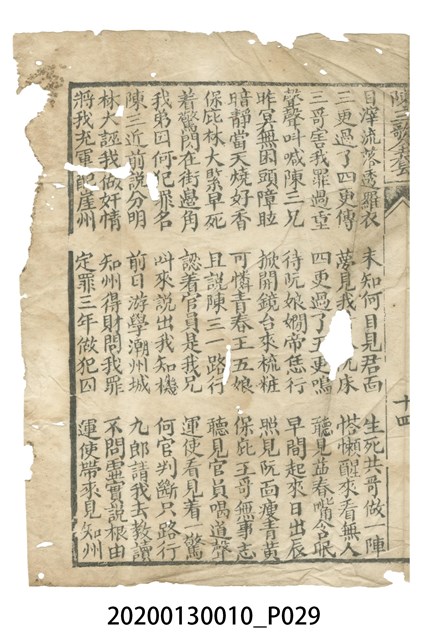 陳三歌全
十四
目滓流落透羅衣 未知何日見君面 生死共哥做一陣
三更過了四更傳 夢見我 阮床 懶醒來看無人
三哥害我罪過重 四更過了五更鳴 聽見益春嘴含眠
聲聲叫喊陳三兄 待阮娘嫺帝恁行 早間起來日出辰
昨冥無困頭障眩 掀開鏡台來梳粧 照見阮面瘦青黃
暗靜當天燒好香 可憐青春王五娘 保庇王哥無事志
保庇林大緊早死 且說陳三一路行 聽見官員喝道聲
着驚閃在街邊角 認着官員是我兄 運使看見着一驚
我弟因何犯罪名 叫來說出我知機 何官判斷只路行
陳三近前說分明 前日游學潮州城 九郎請我去教讀
林大誣我做奸情 知州得財問我罪 不問虛實說根由
將我充軍配崖州 定罪三年做犯囚 運使帶來見知州
20200130010_P029